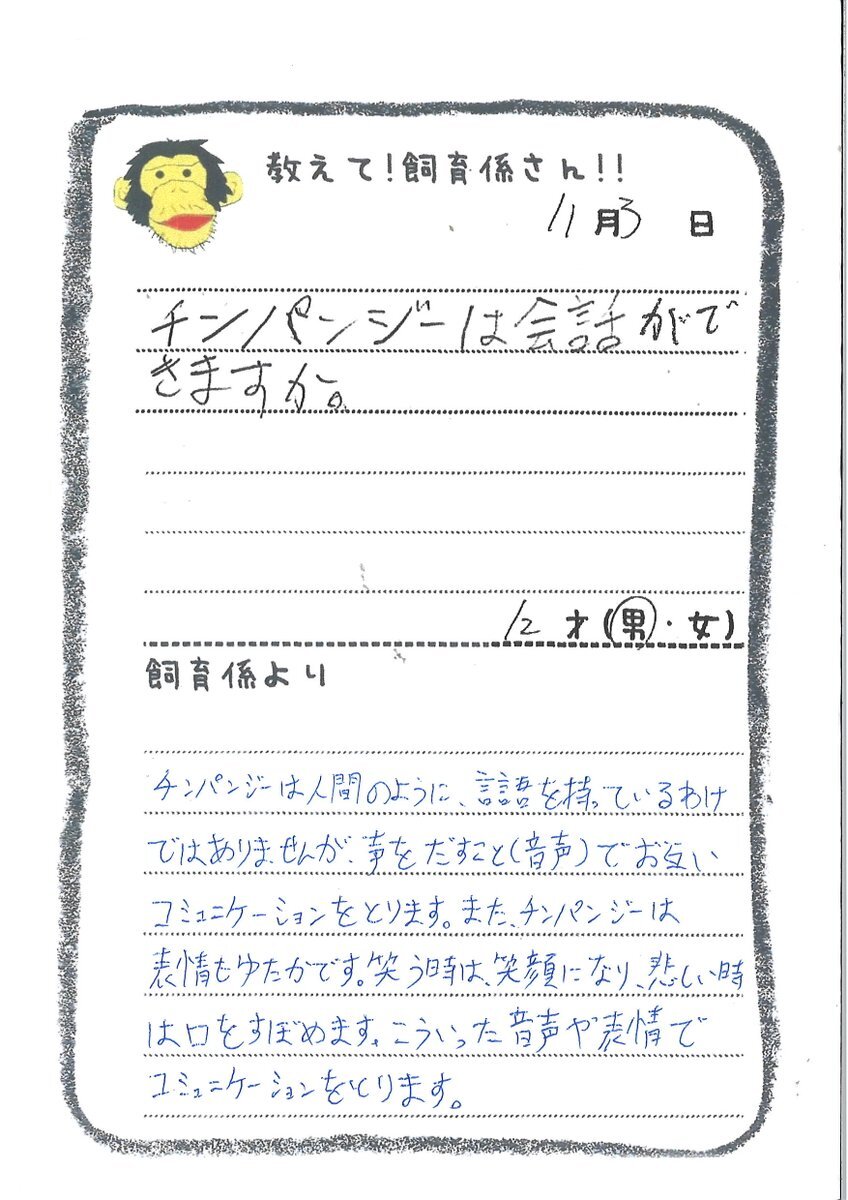 教えて!飼育係さん!!
11月3日
チンパンジーは会話がで
きますか。
12才(男・女)
飼育係より
チンパンジーは人間のように、言語を持っているわけ
ではありませんが、声をだすこと(音声)でお互い
コミュニケーションをとります。また、チンパンジーは
表情もゆたかです。笑う時は、笑顔になり、悲しい時
は口をすぼめます。こういった音声や表情で
コミュニケーションをとります。